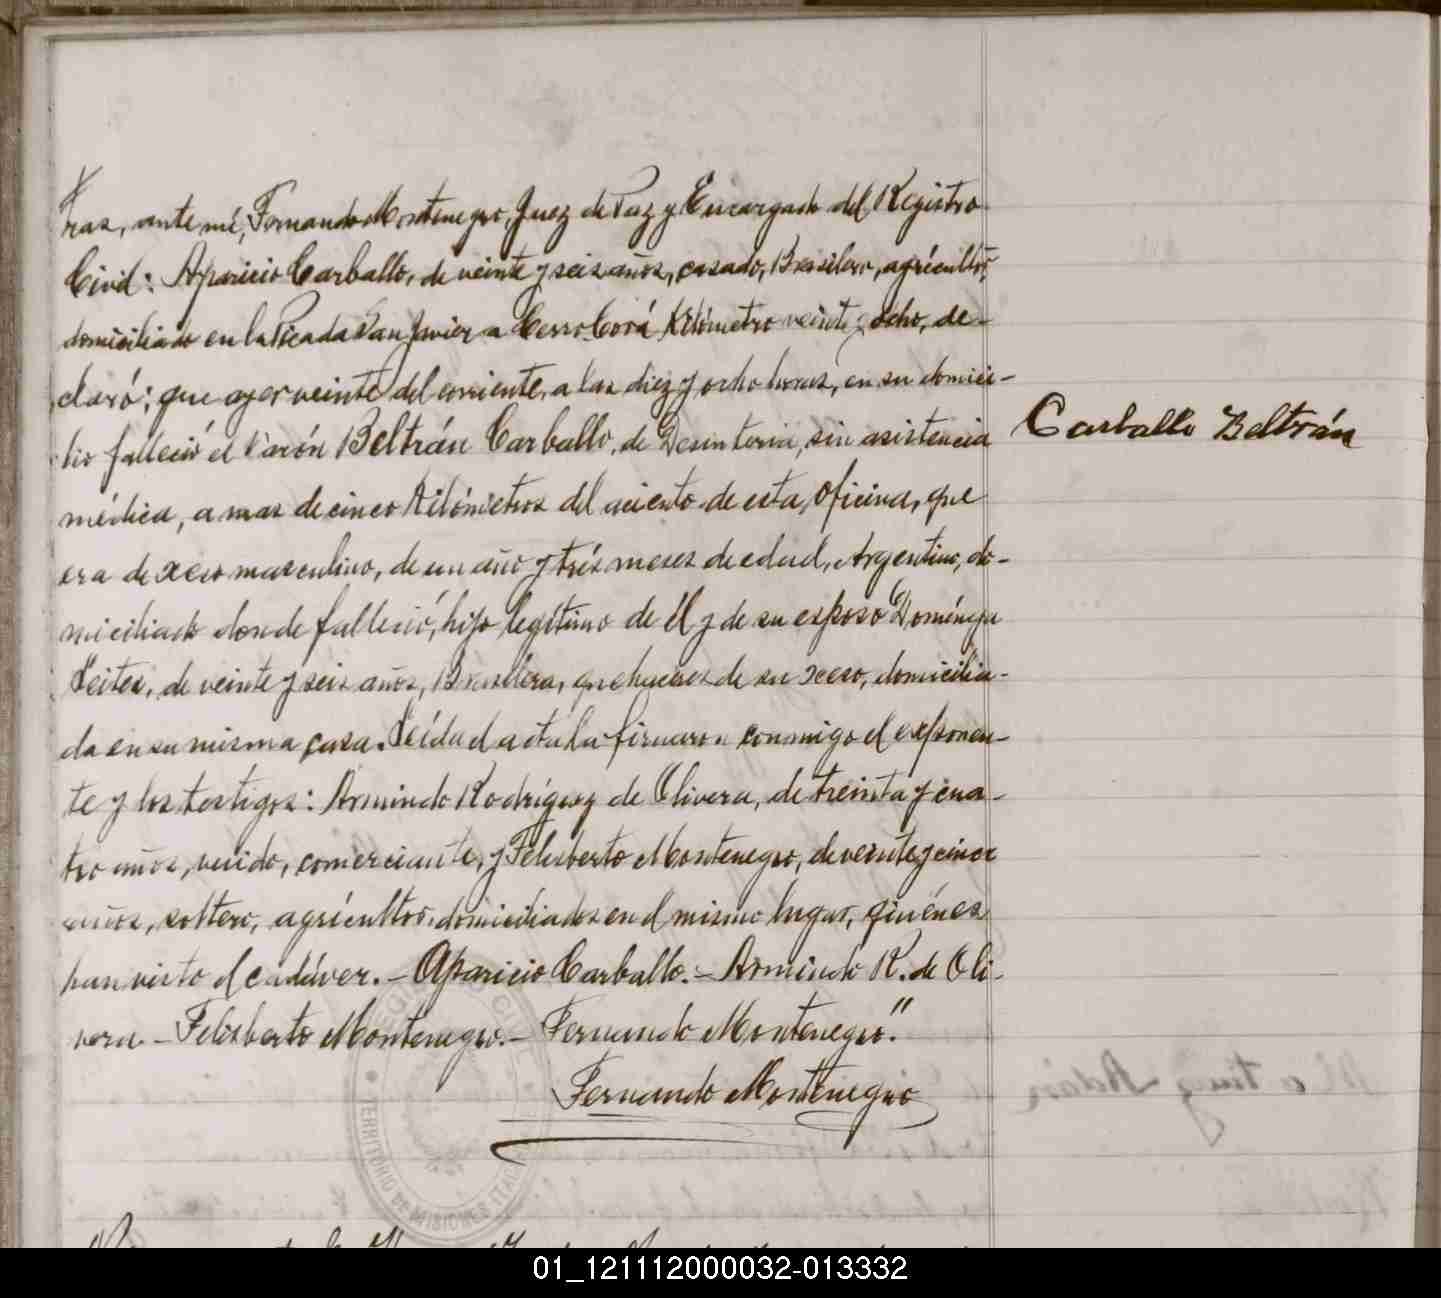 ras, ante mí, Fernando Montenegro, Juez de Paz y Encargado del Registro
Civil: Aparicio Carballo, de veinte y seis años, casado, Brasilero, agrícultor,
domiciliado en la Picada San Javier a Cerro Corá Kilómetro veinte y ocho, de-
claró; que ayer veinte del corriente, a las diez y ocho horas, en su domici-
lio falleció el Varón Beltrán Carballo, de Desinteria, sin asistencia
médica, a mas de cinco Kilómetros del aciento de esta Oficina, que
era de xexo masculino, de un año y trés meses de edad, Argentino, do-
miciliado donde falleció, hijo legítimo de Él y de su esposo Domínga
Leites, de veinte y seis años, Brasilera, quehaceres de su xexo, domicilia-
da en su misma casa. Leída el acta la firmaron conmigo el exponen-
te y los testigos: Armindo Rodríguez de Olivera, de treinta y cua-
tro años, viudo, comerciante, y Felisberto Montenegro, de veinte y cinco
años, soltero, agrícultor, domiciliados en el mismo lugar, quiénes
han visto el cadáver. - Aparicio Carballo. - Armindo R. de Oli-
vera - Felisberto Montenegro. - Fernando Montenegro."
Fernando Montenegro
Carballo Beltrán
TERRITORIO DE MISIONES
01_121112000032-013332